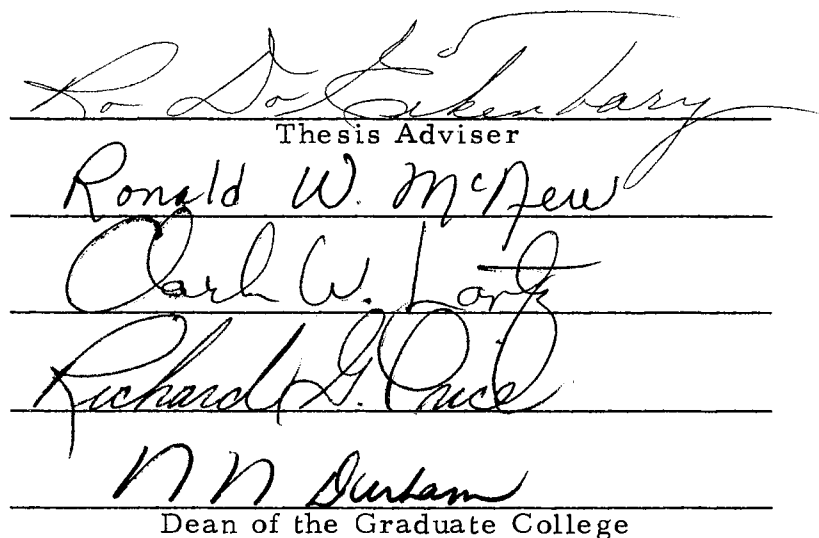 R. D. Eikenbary
Thesis Adviser
Ronald W. McNew
W.
Richard G. Price
N N Durham
Dean of the Graduate College